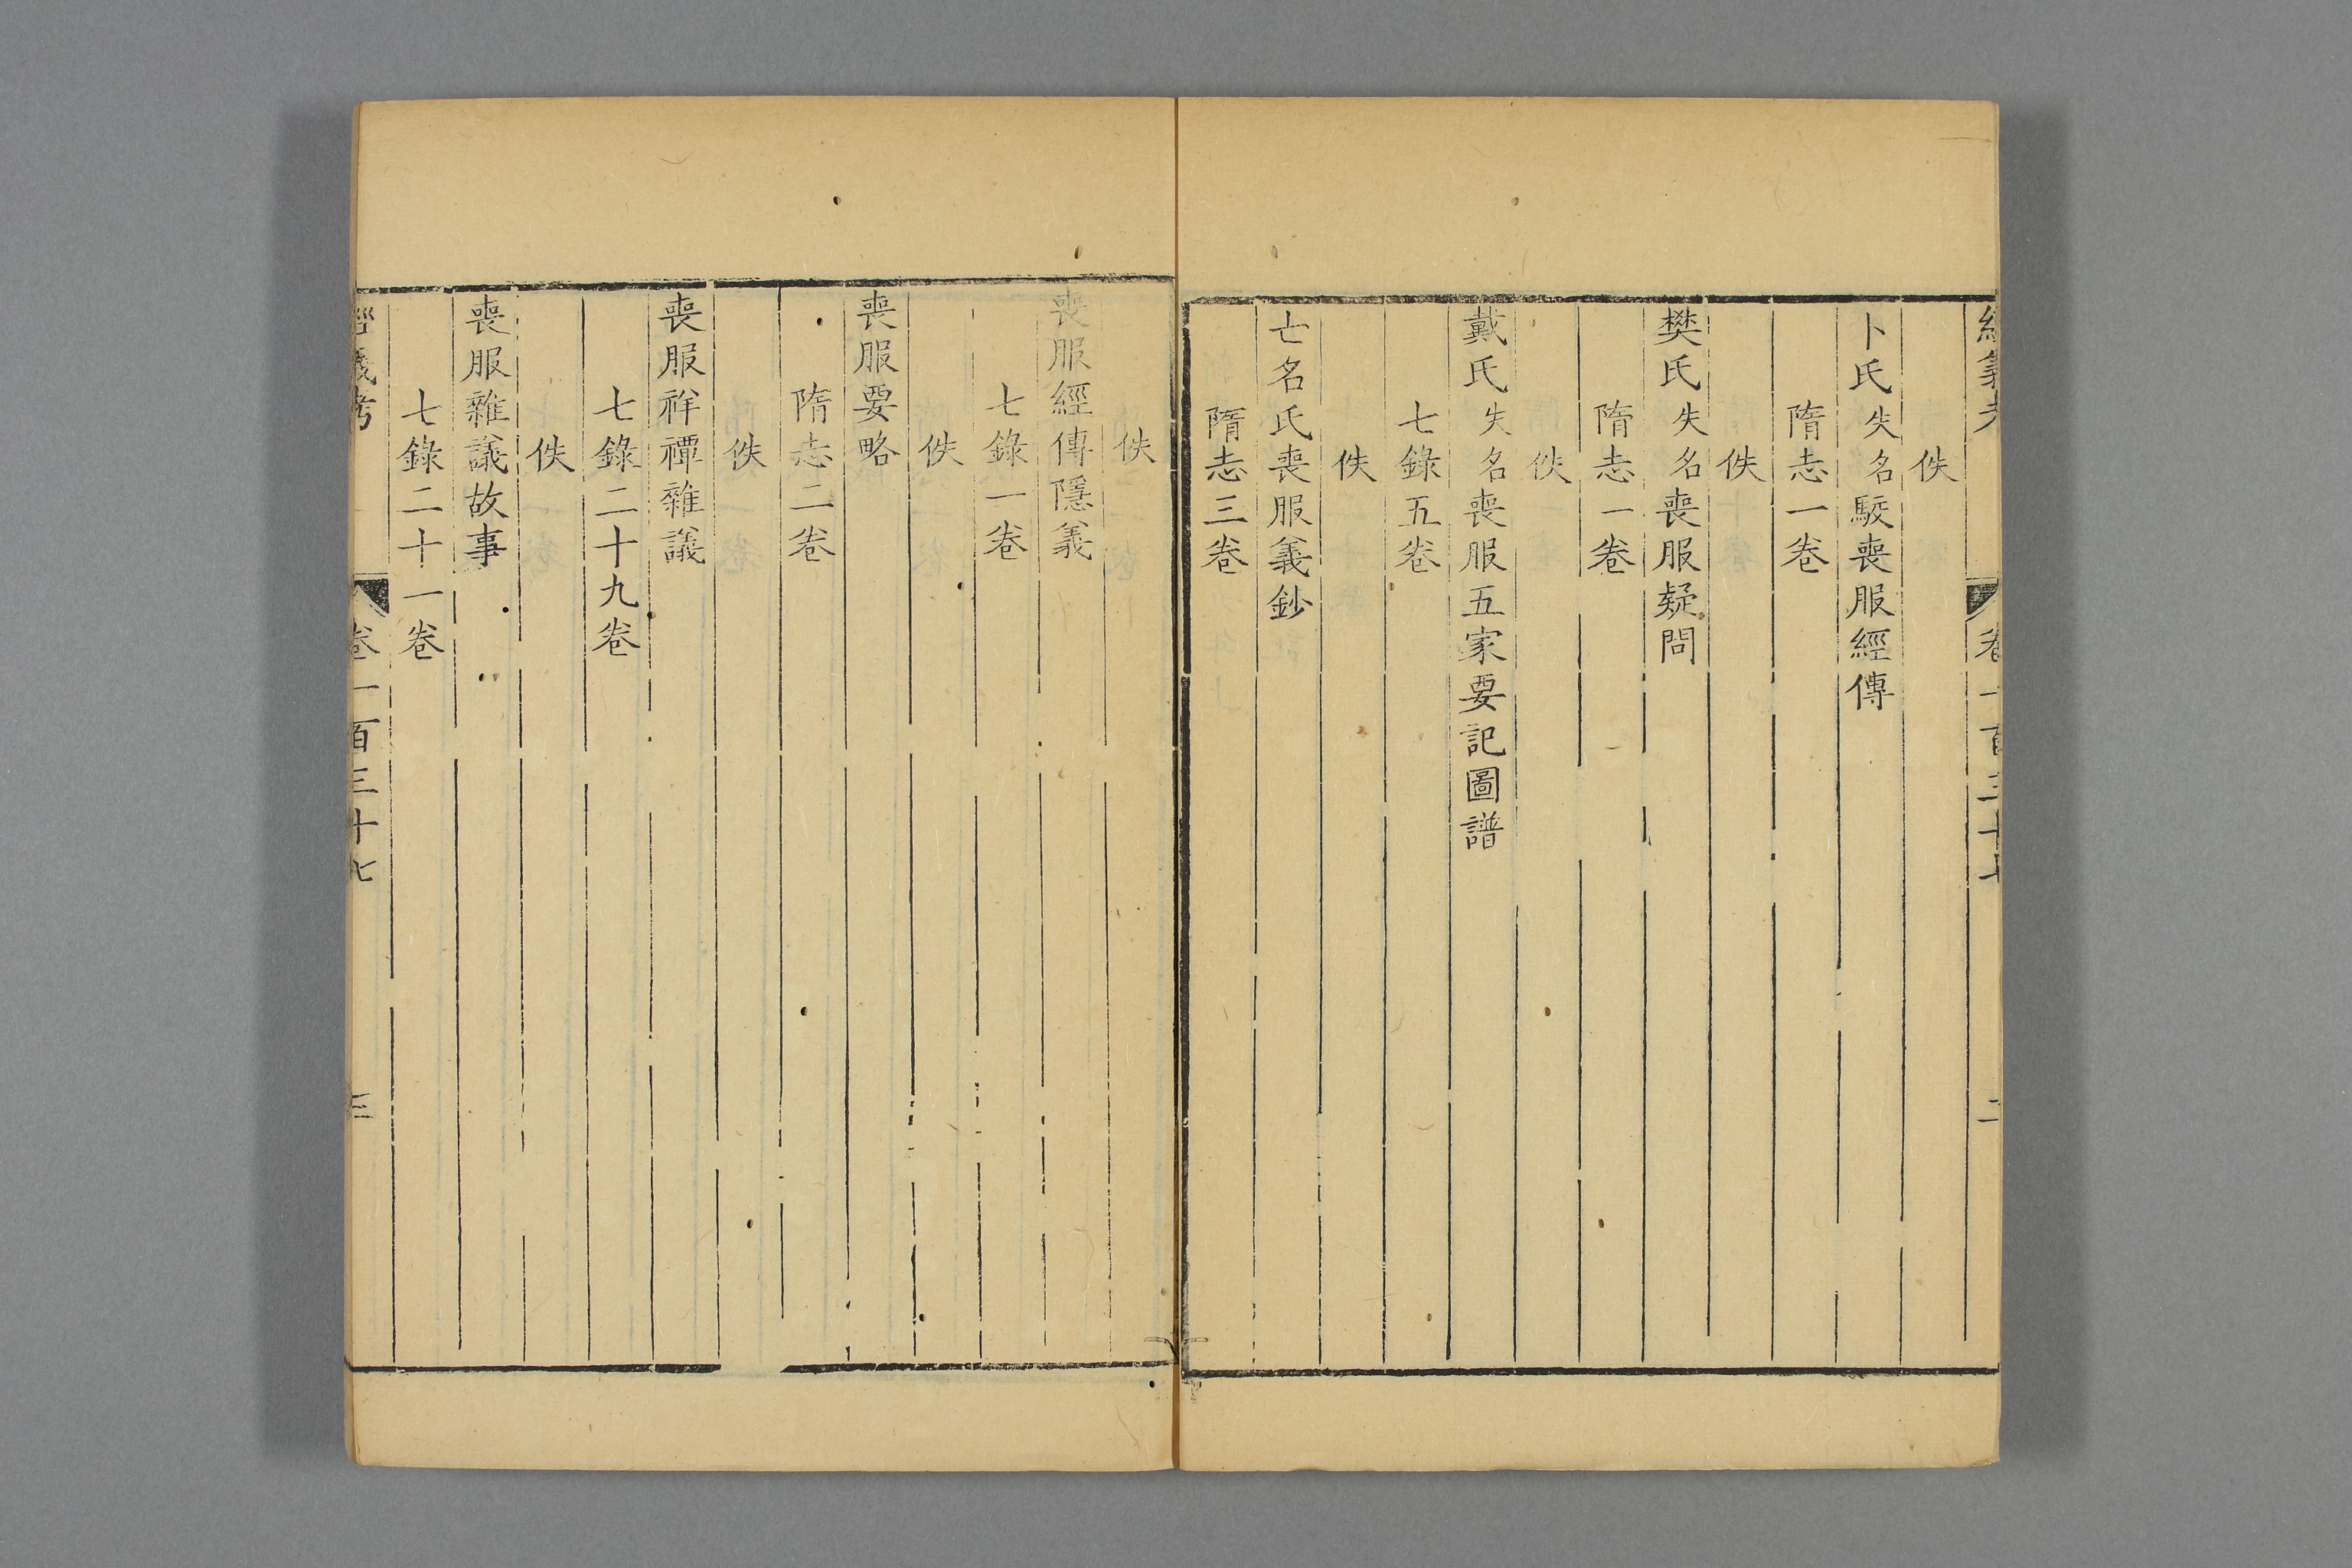 經義考 卷一百三十七 二
佚
卜氏失名駮喪服經傳
隋志一卷
佚
樊氏失名喪服疑問
隋志一卷
佚
戴氏失名喪服五家要記圖譜
七錄五卷
佚
亡名氏喪服義鈔
隋志三卷
佚
喪服經傳隱義
七錄一卷
佚
喪服要略
隋志二卷
佚
喪服祥禫雜議
七錄二十九卷
佚
喪服雜議故事
七錄二十一卷
經義考 卷一百三十七 三